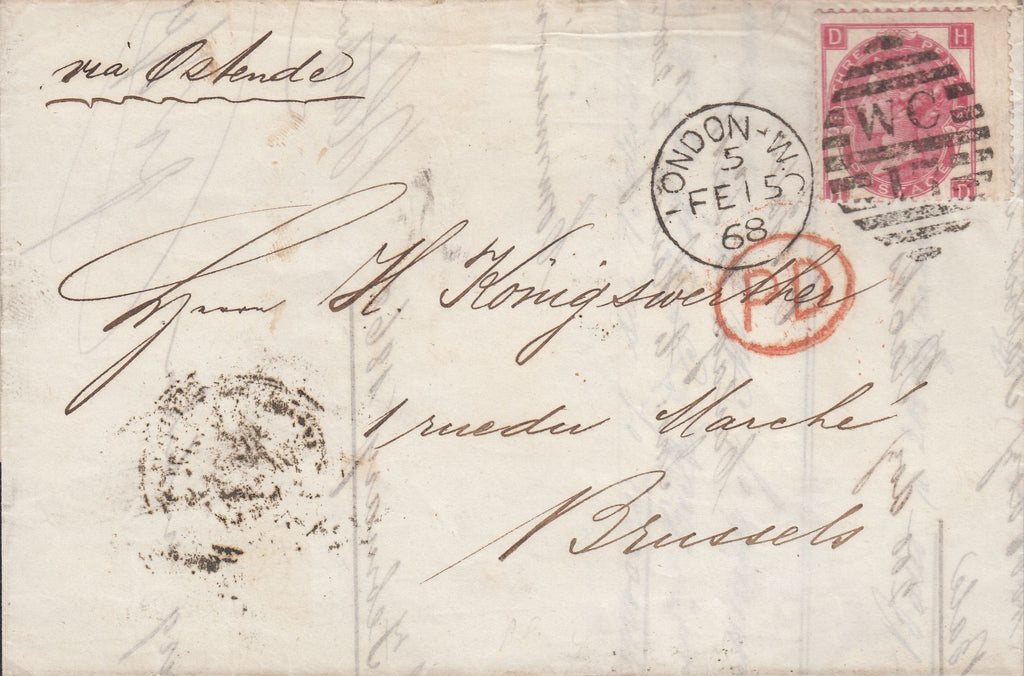 via Ostende
D H
THREE PE
WC
LONDON-W.C
5
FE 15
68
PD
Herrn H. Königswerther
1 rue du Marché
Brussels